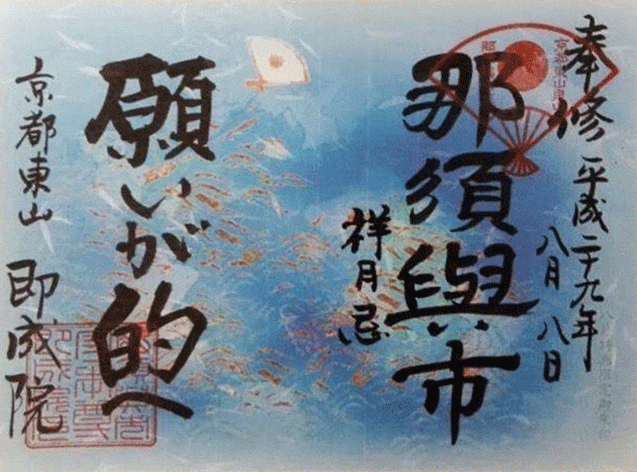 奉修 平成二十九年
八月八日
那須與市
祥月忌
願いが的へ
京都東山 即成院